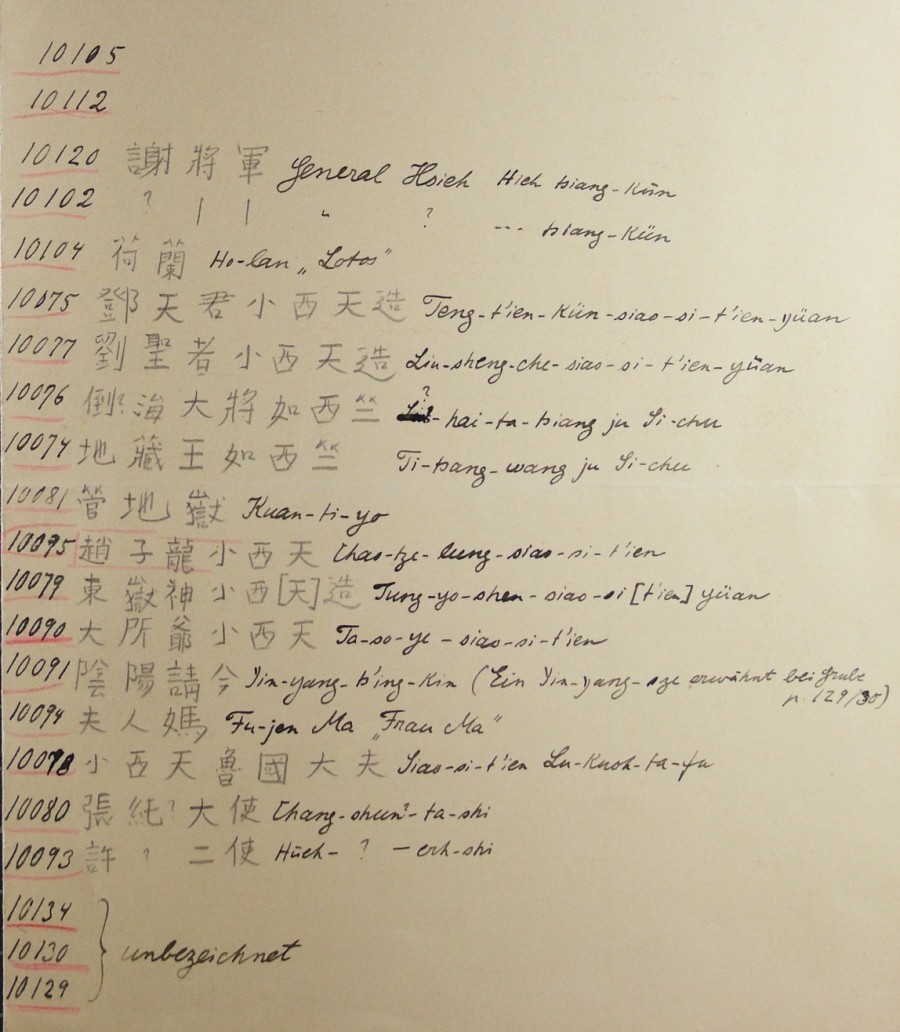 10105
10112
10120 謝將軍 General Hsieh Hieh tsiang-Kün
10102 ? | | " ? --- tsiang-Kün
10104 荷蘭 Ho-lan „Lotos"
10075 鄧天君小西天造 Teng-t'ien-Kün-siao-si-t'ien-yüan
10077 劉聖者小西天造 Liu-sheng-che-siao-si-t'ien-yüan
10076 倒?海大將如西竺 ?-hai-ta-tsiang ju Si-chu
10074 地藏王如西竺 Ti-tsang-wang ju Si-chu
10081 管地嶽 Kuan-ti-yo
10095 趙子龍小西天 Chao-tze-lung-siao-si-t'ien
10079 東嶽神小西[天]造 Tung-yo-shen-siao-si[t'ien] yüan
10090 大所爺小西天 Ta-so-ye-siao-si-t'ien
10091 陰陽請今 Yin-yang-ts'ing-kin (Ein Yin-yang-sze erwähnt bei Grube
p. 129/30)
10094 夫人媽 Fu-jen Ma „Frau Ma"
10078 小西天魯國大夫 Siao-si-t'ien Lu-Kuoh-ta-fu
10080 張純?大使 Chang-shun?-ta-shi
10093 許?二使 Hüeh-?-erh-shi
10134
10130 unbezeichnet
10129